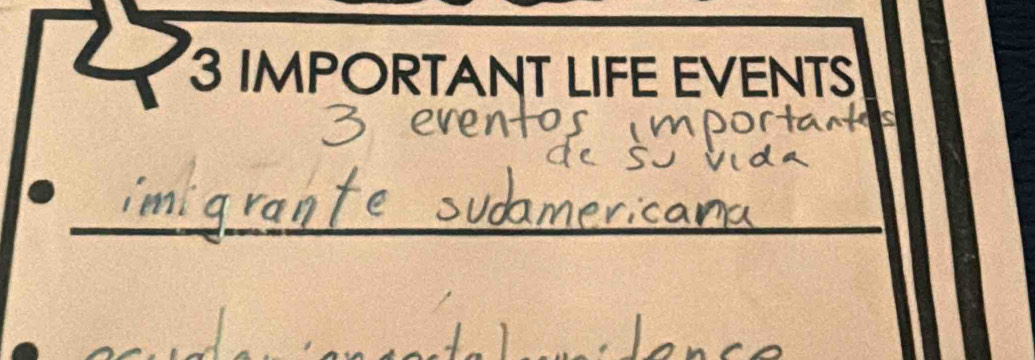 3 IMPORTANT LIFE EVENTS
3 eventos importantes
de su vida
imigrante sudamericana